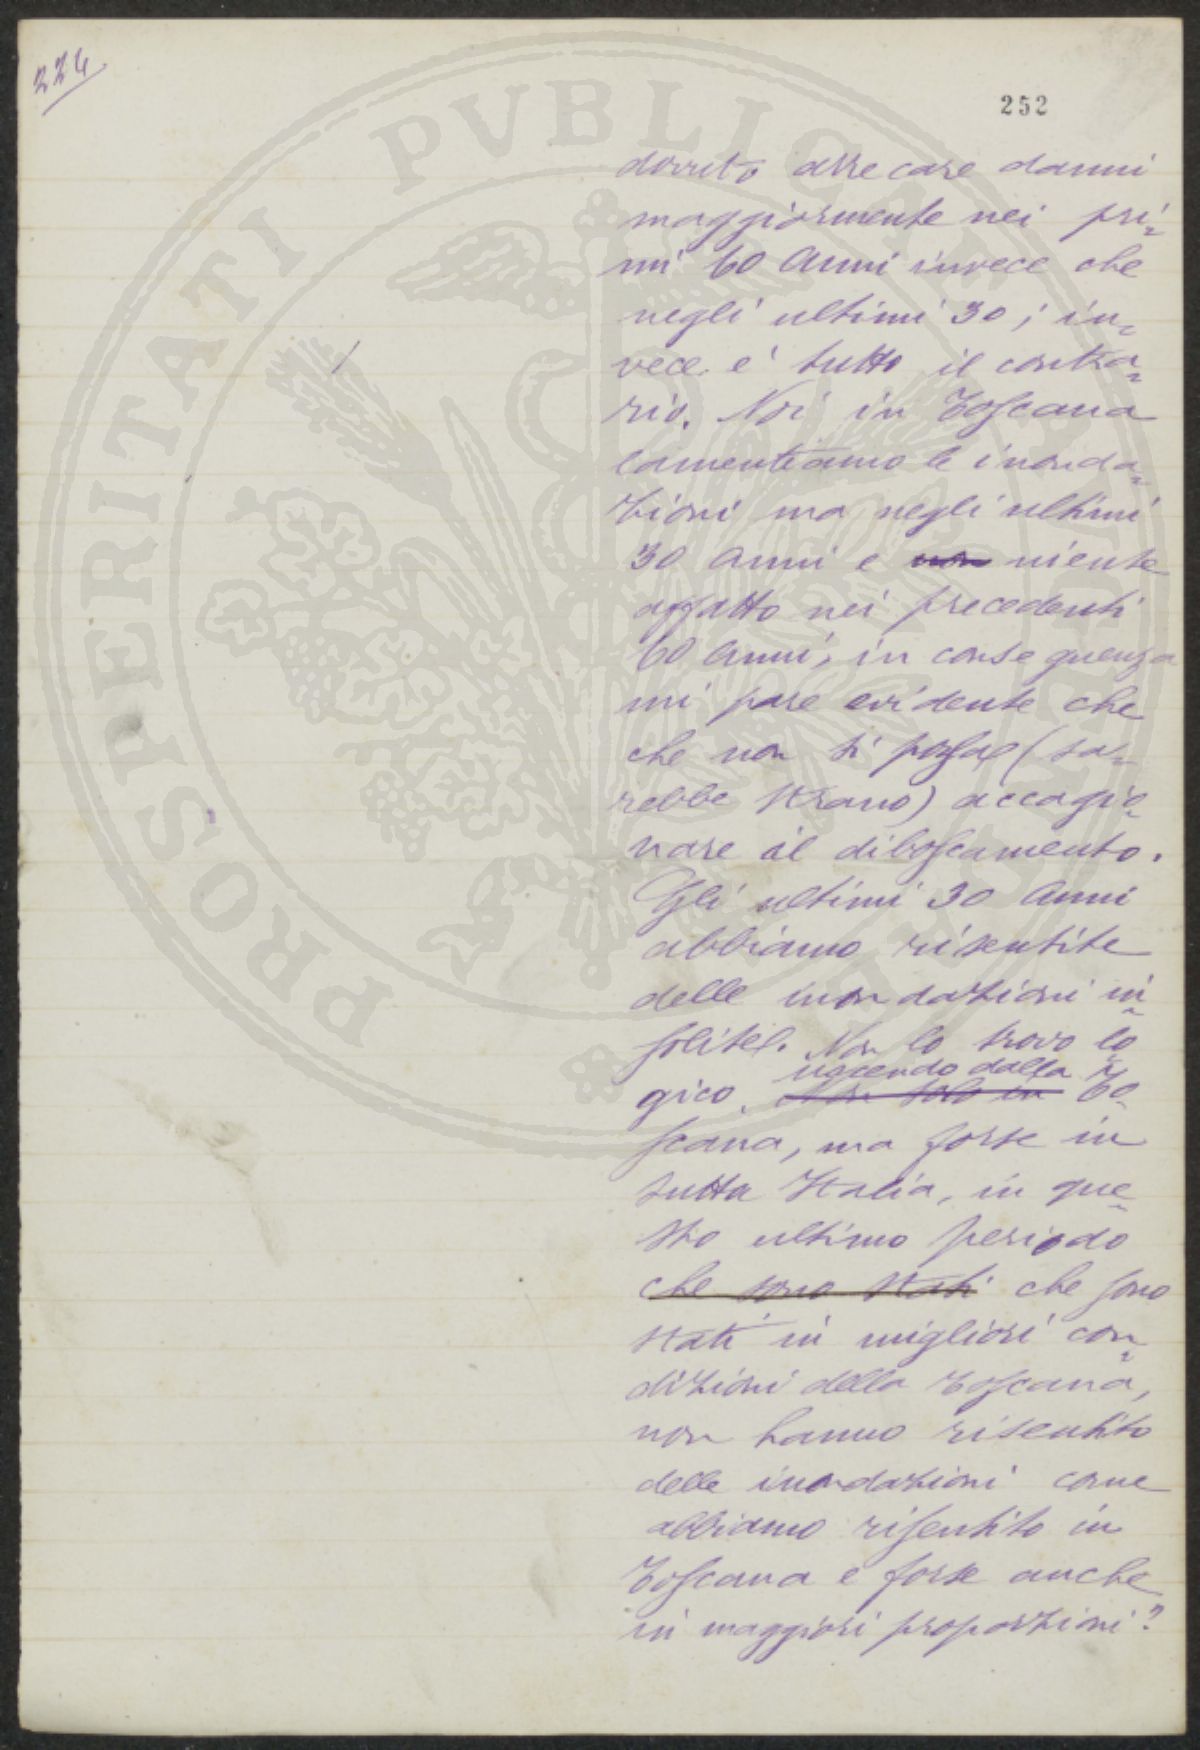 224
252
dovuto arrecare danni
maggiormente nei pri=
mi 60 anni invece che
negli ultimi 30; in=
vece è tutto il contra=
rio. Noi in Toscana
lamentiamo le inonda=
zioni ma negli ultimi
30 anni e non niente
affatto nei precedenti
60 anni; in conseguenza
mi pare evidente che
che non si possa (sa=
rebbe strano) accagio=
nare il diboscamento.
Gli ultimi 30 anni
abbiamo risentite
delle inondazioni in=
solite. Non lo trovo lo=
uscendo dalla
gico. Non solo in To=
scana, ma forse in
tutta Italia, in que=
sto ultimo periodo
che sono stati che sono
stati in migliori con=
dizioni della Toscana,
non hanno risentito
delle inondazioni come
abbiamo risentito in
Toscana e forse anche
in maggiori proporzioni?
PROSPERITATI PVBLICAE